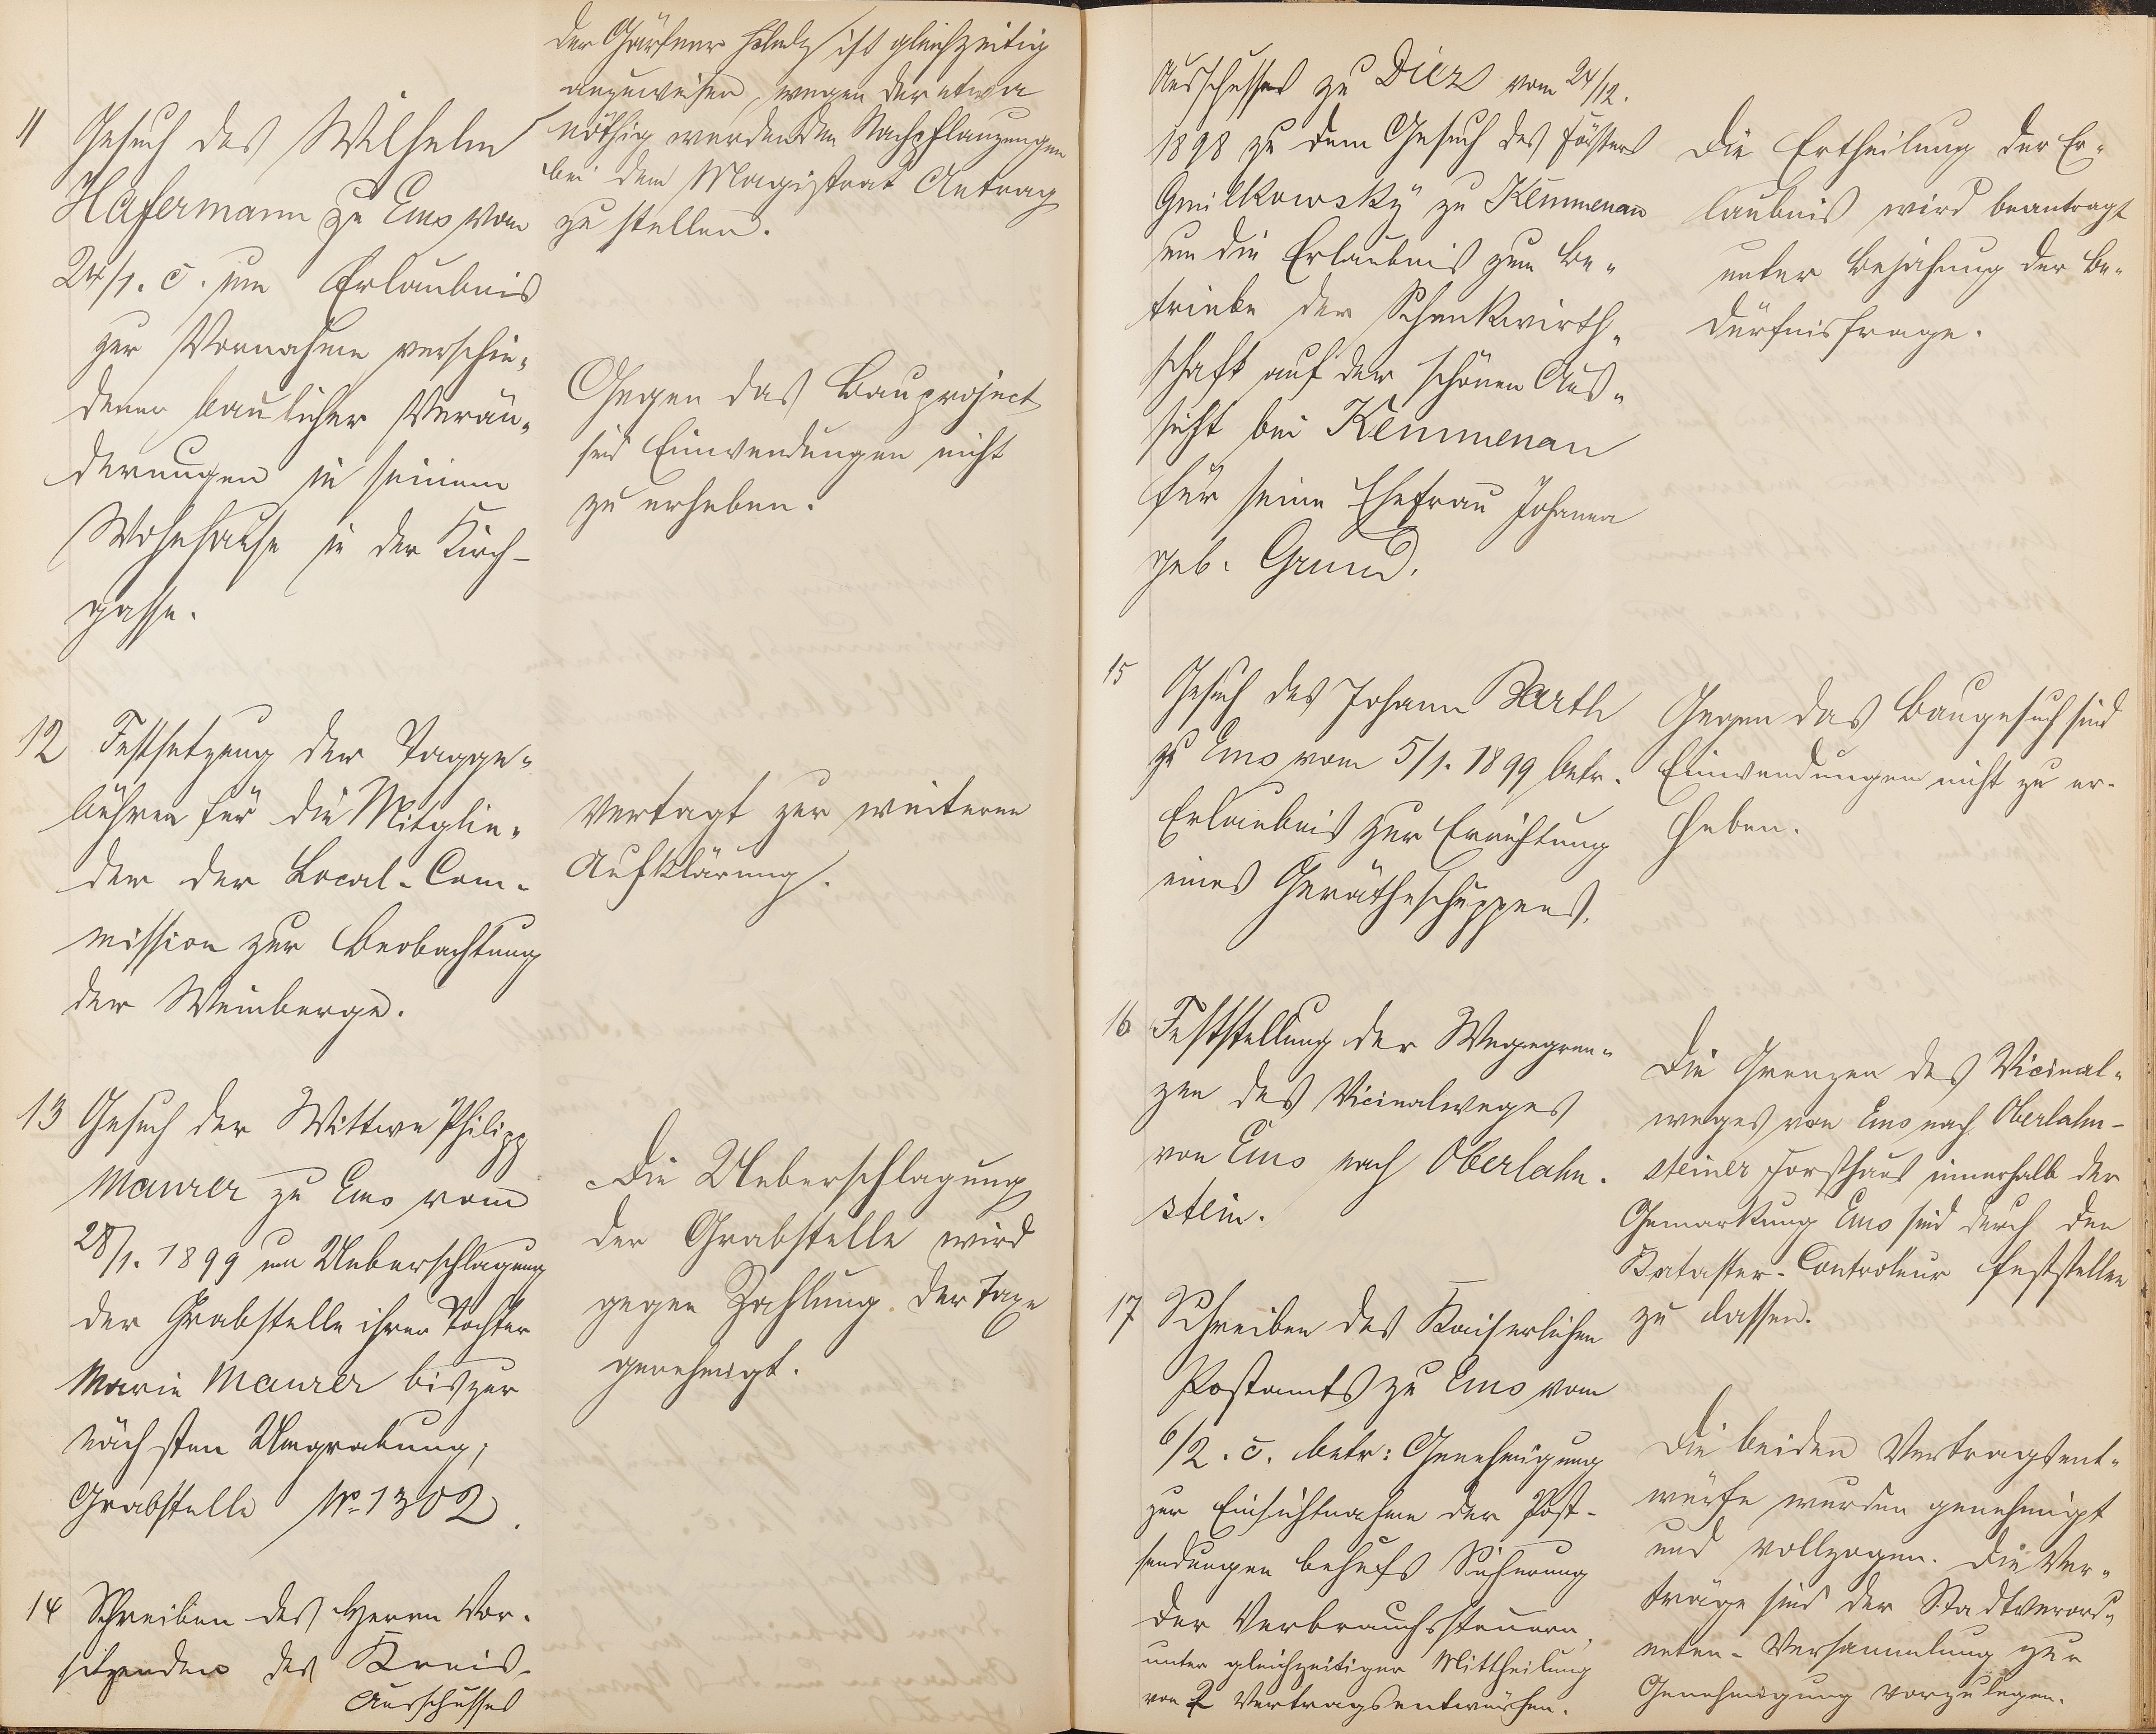 der Gärtner Scholz ist gleichzeitig
anzuweisen, wegen der etwa
nöthig werdenden Nachpflanzungen
bei dem Magistrat Antrag
zu stellen.
11 Gesuch des Wilhelm
Hafermann zu Ems vom
24/1. c. um Erlaubnis
zur Vornahme verschie„
dener baulicher Verän„
derungen in seinem
Wohnhause in der Kirch-
gasse.
Gegen das Bauproject
sind Einwendungen nicht
zu erheben.
12 Festsetzung der Tagge„
bühren für die Mitglie„
der der Local-Com-
mission zur Beobachtung
der Weinberge.
Vertagt zur weiteren
Aufklärung.
13 Gesuch der Wittwe Philipp
Maurer zu Ems vom
28/1. 1899 um Ueberschlagung
der Grabstelle ihrer Tochter
Marie Maurer bis zur
nächsten Umgrabung;
Grabstelle No 1302.
Die Ueberschlagung
der Grabstelle wird
gegen Zahlung der Taxe
genehmigt.
14 Schreiben des Herrn Vor-
sitzenden des Kreis-
Ausschusses
Ausschusses zu Diez vom 24/12.
1898 zu dem Gesuch des Försters
Gmilkowsky zu Kemmenau
um die Erlaubnis zum Be„
triebe der Schankwirth„
schaft auf der schönen Aus„
sicht bei Kemmenau
für seine Ehefrau Johanna
geb. Grund.
Die Ertheilung der Er„
laubnis wird beantragt
unter Bejahung der Be„
dürfnisfrage.
15 Gesuch des Johann Barth
zu Ems vom 5/1. 1899 betr.
Erlaubnis zur Errichtung
eines Gerätheschuppens.
Gegen das Baugesuch sind
Einwendungen nicht zu er-
heben.
16 Feststellung der Wegegren„
zen des Vicinalweges
von Ems nach Oberlahn-
stein.
Die Grenzen des Vicinal„
weges von Ems nach Oberlahn-
steiner Forsthaus innerhalb der
Gemarkung Ems sind durch den
Kataster-Controleur feststellen
zu lassen.
17 Schreiben des Kaiserlichen
Postamts zu Ems vom
6/2. c. betr: Genehmigung
zur Einsichtnahme der Post-
sendungen behufs Sicherung
der Verbrauchssteuern,
unter gleichzeitiger Mittheilung
von 2 Vertragsentwürfen.
Die beiden Vertragsent„
würfe wurden genehmigt
und vollzogen. Die Ver„
träge sind der Stadtverord„
neten-Versammlung zur
Genehmigung vorzulegen.